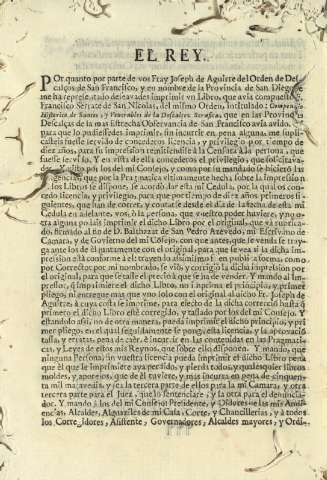 EL REY.
POr quanto por parte de vos Fray Joseph de Aguirre del Orden de Des-
calços de San Francisco, y en nombre de la Provincia de San Diego
me ha representado deseavades imprimir vn Libro, que avia compuesto
Francisco Serrate de San Nicolàs, del mismo Orden, intitulado: Compen
Historico de Santos, y Venerables de la Descalzez Serafica, que en las Provincias
Descalças de la mas Estrecha Observancia de San Francisco avia avido
para que lo pudiessedes imprimir, sin incurrir en pena alguna, me supli-
casteis fuesse servido de concederos licencia, y privilegio por tiempo de
diez años, para su impression remitiendose à la Censura à la persona, que
fuesse servido, Y en vista de ella concederos el privilegio, que solicitava-
des. Y visto por los del mi Consejo, y como por su mandado se hizieron las
diligencias, que por la Pragmatica vltimamente hecha sobre la impression de
los Libros se dispone, se acordò dar esta mi Cedula, por la qual os conce-
do licencia, y privilegio, para que por tiempo de diez años primeros si-
guientes, que han de correr, y contarse desde el dia de la fecha de esta mi
Cedula en adelante, vos, ò la persona, que vuestro poder huviere, y no o-
tra alguna podais imprimir el dicho Libro por el original, que và rubrica-
do, firmado al fin de D. Balthazar de San Pedro Azevedo, mi Escrivano de
Camara, y de Govierno del mi Consejo, con que antes, que se venda se tray-
ga ante los de èl juntamente con el original, para que se vea si la dicha im-
pression està conforme à èl trayendo assimismo fee en publica forma, como
por Corrector por mi nombrado, se viò, y corrigiò la dicha impression por
el original, para que se tasse el precio à que se ha de vender. Y mando al Im-
pressor, que imprimiere el dicho Libro, no imprima el principio, y primer
pliego, ni entregue mas que vno solo con el original al dicho Fr. Joseph de
Aguirre, à cuya costa se imprime, para efecto de la dicha correccion hasta
primero el dicho Libro estè corregido, y tassado por los del mi Consejo. Y
estandolo assi, y no de otra manera, pueda imprimir el dicho principio, y pri-
mer pliego, en el qual seguidamente se ponga esta licencia, y la aprovacion,
tassa, y erratas, pena de caèr, è incurrir en las contenidas en las Pragmati-
cas, y Leyes de estos mis Reynos, que sobre ello disponen. Y mando, que
ninguna Persona sin vuestra licencia pueda imprimir el dicho Libro pena
que el que le imprimiere aya perdido, y pierda todos, y qualesquier libros,
moldes, y aparejos, que de èl tuviere, y mas incurra en pena de cinquenta
mil maravedis, y sea la tercera parte de ellos para la mi Camara, y otra
tercera parte para el Juez, que lo sentenciare, y la otra para el denuncia-
dor. Y mando à los del mi Consejo Presidente, y Oìdores de las mis Audi-
encias, Alcaldes, Alguaziles de mi Casa, Corte, y Chancillerias, y à todos
los Corregidores, Assistente, Governadores, Alcaldes mayores, y Ordi-